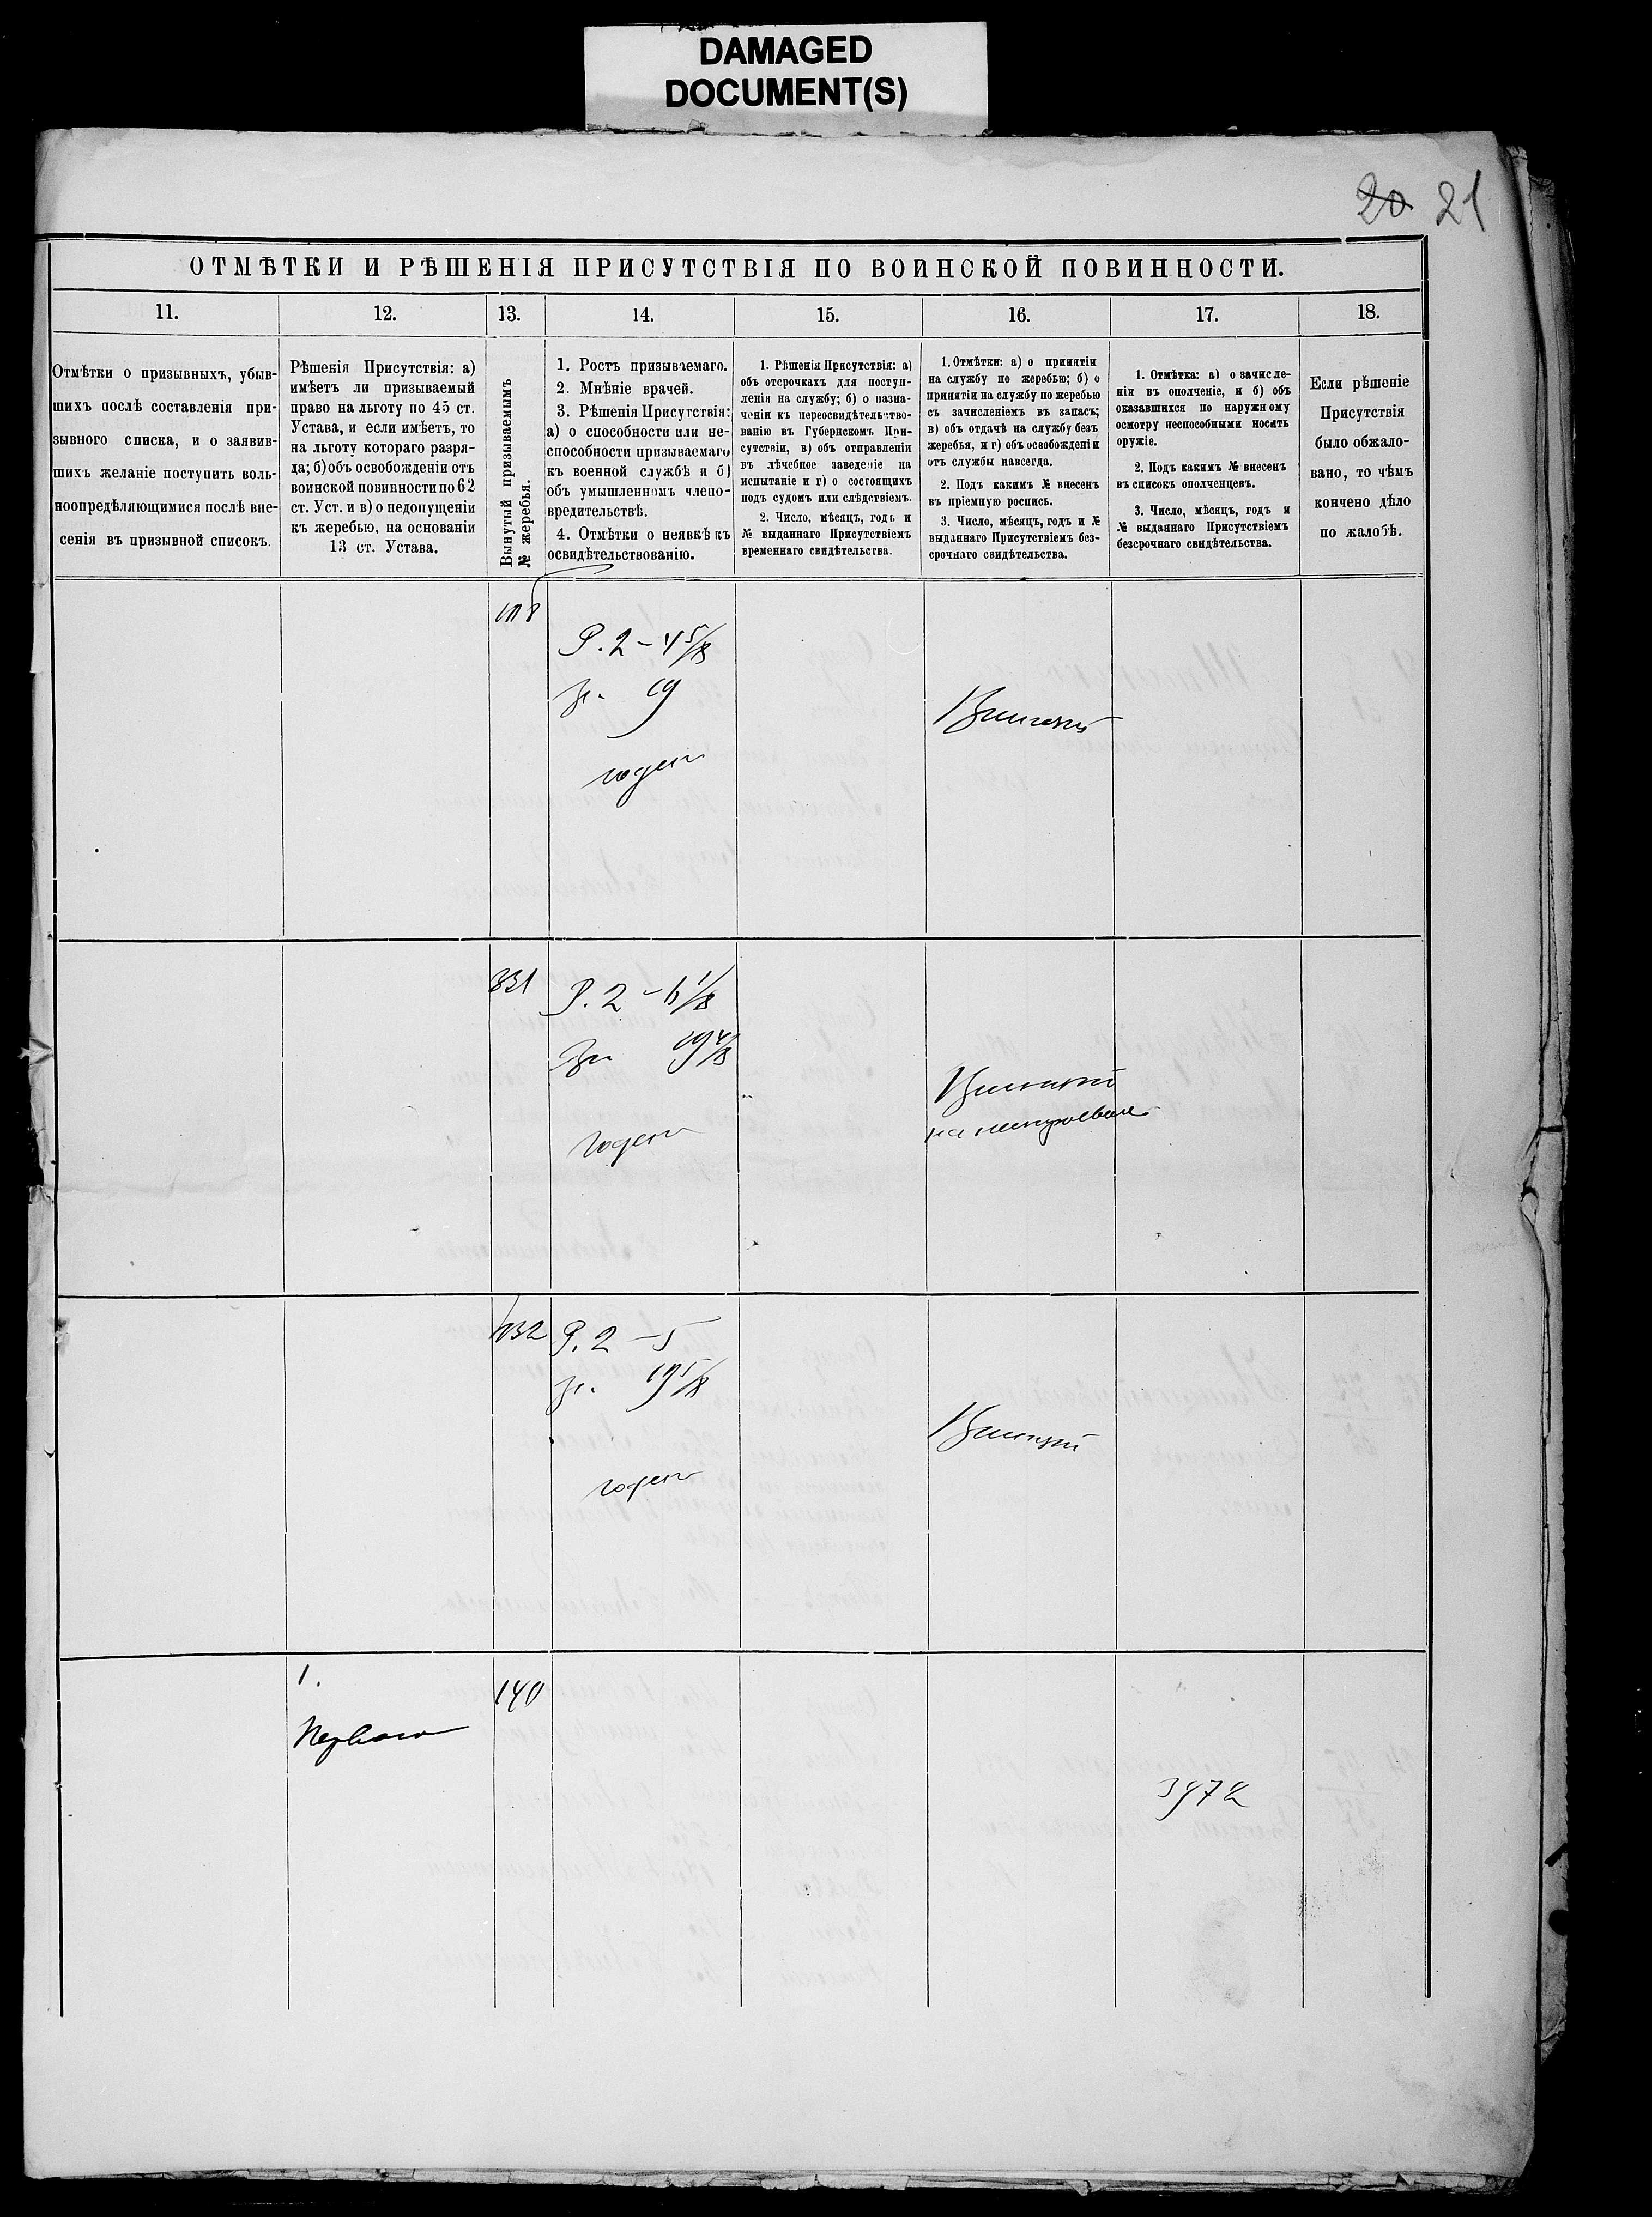 DAMAGED
DOCUMENT(S)
20 21
ОТМѢТКИ И РѢШЕНІЯ ПРИСУТСТВІЯ ПО ВОИНСКОЙ ПОВИННОСТИ.
11. 12. 13. 14. 15. 16. 17. 18.
Отмѣтки о призывныхъ, убыв-
шихъ послѣ составленія при-
зывного списка, и о заявив-
шихъ желаніе поступить воль-
ноопредѣляющимися послѣ вне-
сенія въ призывной списокъ.
Рѣшенія Присутствія: а)
имѣетъ ли призываемый
право на льготу по 45 ст.
Устава, и если имѣетъ, то
на льготу котораго разря-
да; б) объ освобожденіи отъ
воинской повинности по 62
ст. Уст. и в) о недопущеніи
къ жеребью, на основаніи
13 ст. Устава.
Вынутый призываемымъ
№ жеребья.
1. Ростъ призываемаго.
2. Мнѣніе врачей.
3. Рѣшенія Присутствія:
а) о способности или не-
способности призываемаго
къ военной службѣ и б)
объ умышленномъ члено-
вредительствѣ.
4. Отмѣтки о неявкѣ къ
освидѣтельствованію.
1. Рѣшенія Присутствія: а)
объ отсрочкахъ для поступ-
ленія на службу; б) о назна-
ченіи къ переосвидѣтельство-
ванію въ Губернскомъ При-
сутствіи, в) объ отправленіи
въ лѣчебное заведеніе на
испытаніе и г) о состоящихъ
подъ судомъ или слѣдствіемъ.
2. Число, мѣсяцъ, годъ и
№ выданнаго Присутствіемъ
временнаго свидѣтельства.
1. Отмѣтки: а) о принятіи
на службу по жеребью; б) о
принятіи на службу по жеребью
съ зачисленіемъ въ запасъ;
в) объ отдачѣ на службу безъ
жеребья, и г) объ освобожденіи
отъ службы навсегда.
2. Подъ какимъ № внесенъ
въ пріемную роспись.
3. Число, мѣсяцъ, годъ и №
выданнаго Присутствіемъ без-
срочнаго свидѣтельства.
1. Отмѣтка: а) о зачисле-
ніи въ ополченіе, и б) объ
оказавшихся по наружному
осмотру неспособными носить
оружіе.
2. Подъ какимъ № внесенъ
въ списокъ ополченцевъ.
3. Число, мѣсяцъ, годъ и
№ выданнаго Присутствіемъ
безсрочнаго свидѣтельства.
Если рѣшеніе
Присутствія
было обжало-
вано, то чѣмъ
кончено дѣло
по жалобѣ.
Р. 2 - 4 5/8
19
годен
331
Р. 2 - 6 1/8
19 4/8
годен
632
Р. 2 - 5
19 5/8
годен
1.
Перваго
140